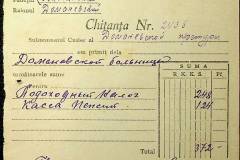 Raionul Доманевский
Chitanţa Nr. 2135
Subsemnatul Casier al Доманевской претуры
am primit dela
Доманевской больницы
următoarele sume
SUMA
R.K.K.S.
Pentru
Подоходный налог 248
Касса Пенсий 124
Total 372 -